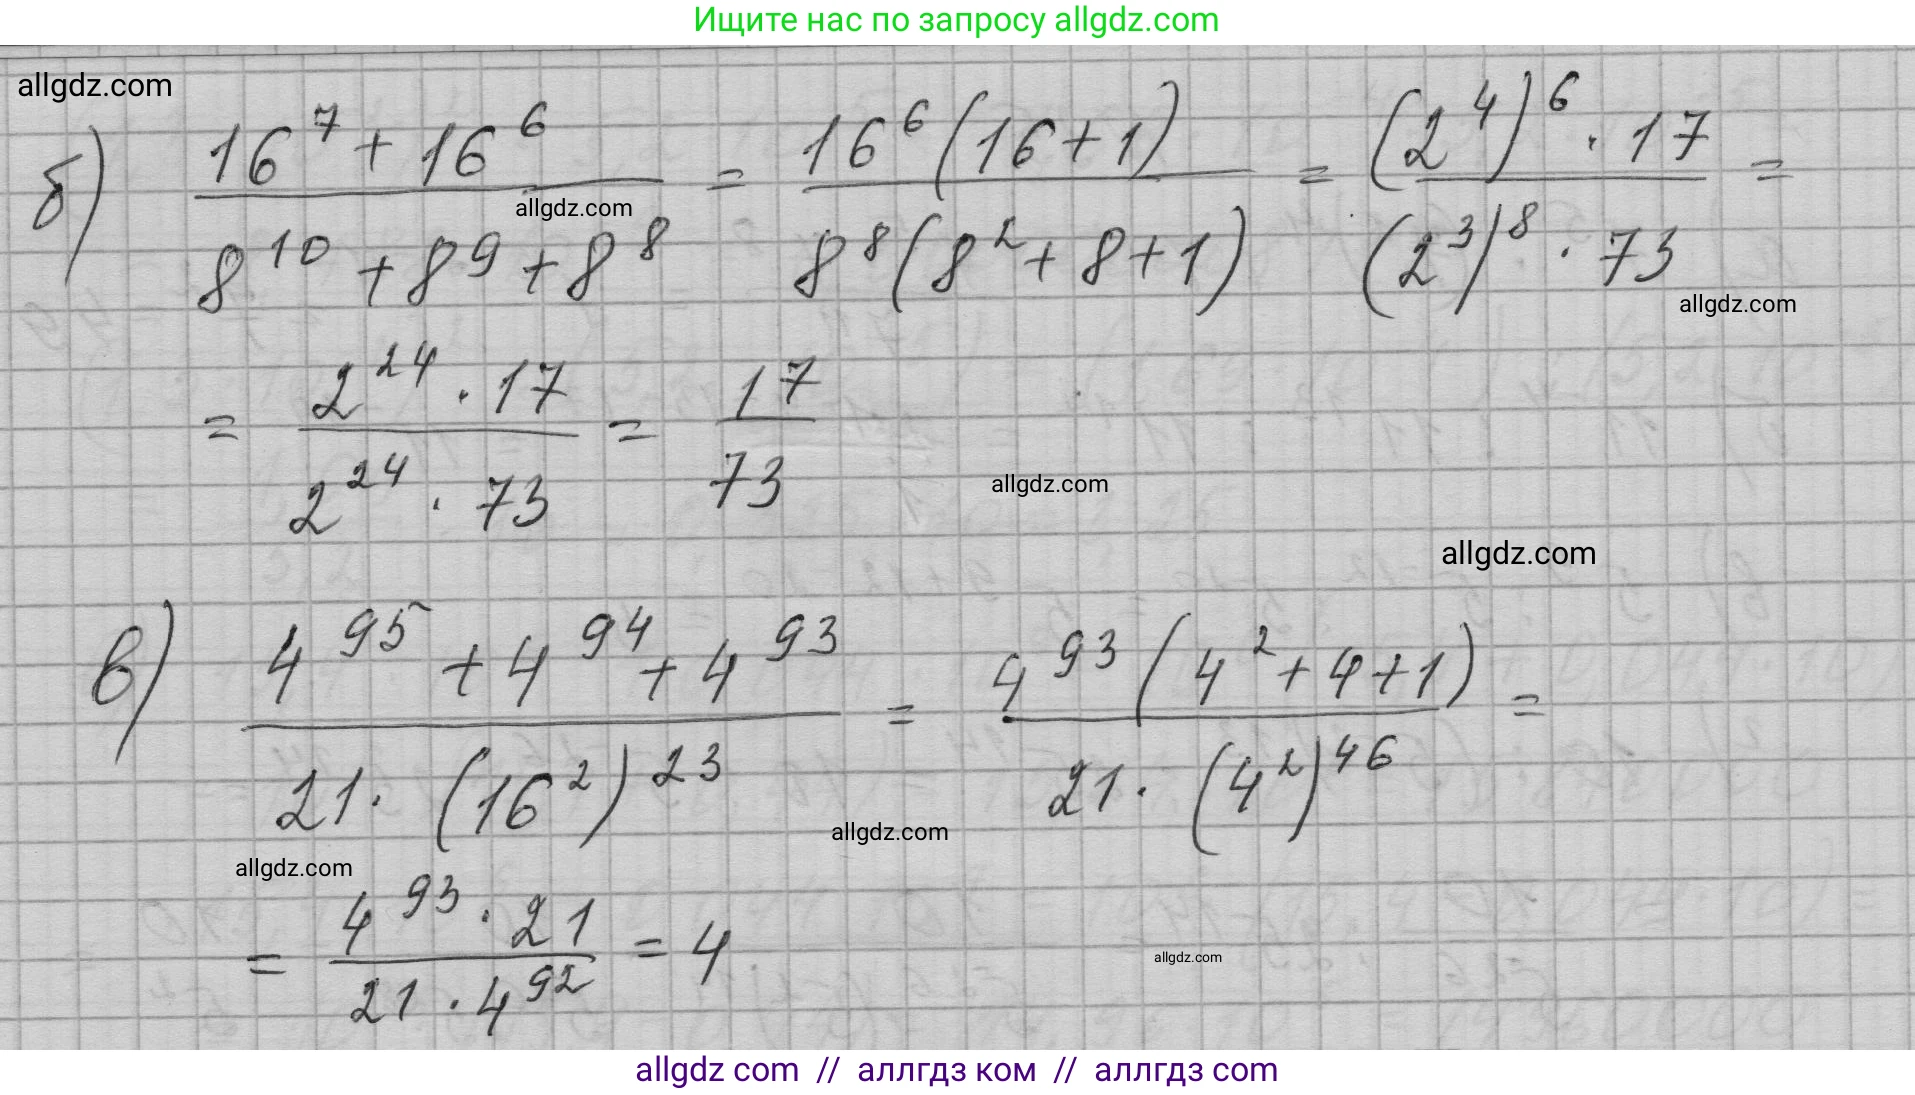 Ищите нас по запросу allgdz.com
allgdz.com
б) (16^7 + 16^6)/(8^10 + 8^9 + 8^8) = (16^6(16+1))/(8^8(8^2+8+1)) = ((2^4)^6 · 17)/((2^3)^8 · 73) =
allgdz.com
allgdz.com
= (2^24 · 17)/(2^24 · 73) = 17/73
allgdz.com
allgdz.com
в) (4^95 + 4^94 + 4^93)/(21 · (16^2)^23) = (4^93(4^2+4+1))/(21 · (4^2)^46) =
allgdz.com
allgdz.com
= (4^93 · 21)/(21 · 4^92) = 4
allgdz.com
allgdz com // аллгдз ком // аллгдз com